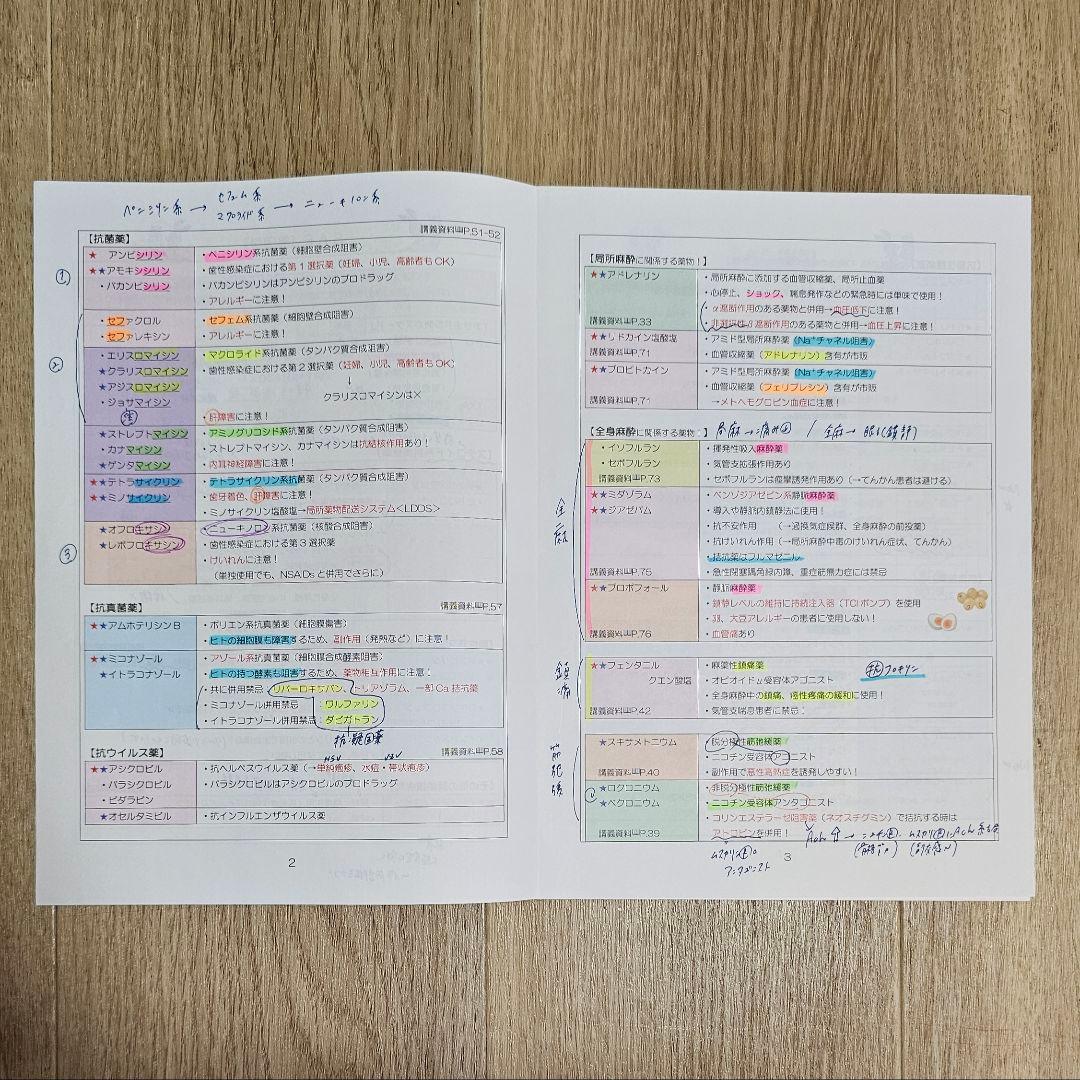 ペンシリン系 → セフェム系 マクロライド系 → ニューキノロン系
【抗菌薬】 講義資料ⅢP.51-52
①
★ アンピシリン
★★アモキシシリン
・バカンピシリン
・ペニシリン系抗菌薬（細胞壁合成阻害）
・歯性感染症における第1選択薬（妊婦、小児、高齢者もOK）
・バカンピシリンはアンピシリンのプロドラッグ
・アレルギーに注意！
②
・セファクロル
・セファレキシン
・セフェム系抗菌薬（細胞壁合成阻害）
・アレルギーに注意！
・エリスロマイシン
★クラリスロマイシン
★アジスロマイシン
・ジョサマイシン
・マクロライド系抗菌薬（タンパク質合成阻害）
・歯性感染症における第2選択薬（妊婦、小児、高齢者もOK）
↓
クラリスロマイシンは×
・肝障害に注意！
★ストレプトマイシン
・カナマイシン
★ゲンタマイシン
・アミノグリコシド系抗菌薬（タンパク質合成阻害）
・ストレプトマイシン、カナマイシンは抗結核作用あり！
・内耳神経障害に注意！
★★テトラサイクリン
★★ミノサイクリン
・テトラサイクリン系抗菌薬（タンパク質合成阻害）
・歯牙着色、肝障害に注意！
・ミノサイクリン塩酸塩→局所薬物配送システム<LDDS>
③
★オフロキサシン
★レボフロキサシン
・ニューキノロン系抗菌薬（核酸合成阻害）
・歯性感染症における第3選択薬
・けいれんに注意！
（単独使用でも、NSAIDsと併用でさらに）
【抗真菌薬】 講義資料ⅢP.57
★★アムホテリシンB
・ポリエン系抗真菌薬（細胞膜傷害）
・ヒトの細胞膜も障害するため、副作用（発熱など）に注意！
★★ミコナゾール
★イトラコナゾール
・アゾール系抗真菌薬（細胞膜合成酵素阻害）
・ヒトの持つ酵素も阻害するため、薬物相互作用に注意：
・共に併用禁忌：リバーロキサバン、トリアゾラム、一部Ca拮抗薬
・ミコナゾール併用禁忌 ：ワルファリン
・イトラコナゾール併用禁忌：ダビガトラン
抗凝固薬
【抗ウイルス薬】 講義資料ⅢP.58
HSV VZV
★★アシクロビル
・バラシクロビル
・ビダラビン
・抗ヘルペスウイルス薬（→単純疱疹、水痘・帯状疱疹）
・バラシクロビルはアシクロビルのプロドラッグ
★オセルタミビル
・抗インフルエンザウイルス薬
2
【局所麻酔に関係する薬物！】
★★アドレナリン
講義資料ⅢP.33
・局所麻酔に添加する血管収縮薬、局所止血薬
・心停止、ショック、喘息発作などの緊急時には単味で使用！
・α遮断作用のある薬物と併用→血圧低下に注意！
・非選択性β遮断作用のある薬物と併用→血圧上昇に注意！
★★リドカイン塩酸塩
講義資料ⅢP.71
・アミド型局所麻酔薬（Na⁺チャネル阻害）
・血管収縮薬（アドレナリン）含有が市販
★★プロピトカイン
講義資料ⅢP.71
・アミド型局所麻酔薬（Na⁺チャネル阻害）
・血管収縮薬（フェリプレシン）含有が市販
→メトヘモグロビン血症に注意！
【全身麻酔に関係する薬物：】 局麻→痛み / 全麻→眠気(鎮静)
全麻
・イソフルラン
・セボフルラン
講義資料ⅢP.73
・揮発性吸入麻酔薬
・気管支拡張作用あり
・セボフルランは痙攣誘発作用あり（→てんかん患者は避ける）
★★ミダゾラム
★★ジアゼパム
講義資料ⅢP.75
・ベンゾジアゼピン系静脈麻酔薬
・導入や静脈内鎮静法に使用！
・抗不安作用 （→過換気症候群、全身麻酔の前投薬）
・抗けいれん作用（→局所麻酔中毒のけいれん症状、てんかん）
・拮抗薬はフルマゼニル
・急性閉塞隅角緑内障、重症筋無力症には禁忌
★★プロポフォール
講義資料ⅢP.76
・静脈麻酔薬
・鎮静レベルの維持に持続注入器（TCIポンプ）を使用
・卵、大豆アレルギーの患者に使用しない！
・血管痛あり
鎮痛
★★フェンタニル
クエン酸塩
講義資料ⅢP.42
・麻薬性鎮痛薬
・オピオイドμ受容体アゴニスト
・全身麻酔中の鎮痛、癌性疼痛の緩和に使用！
・気管支喘息患者に禁忌：
筋弛緩
・スキサメトニウム
講義資料ⅢP.40
・脱分極性筋弛緩薬
・ニコチン受容体アゴニスト
・副作用で悪性高熱症を誘発しやすい！
★ロクロニウム
★ベクロニウム
講義資料ⅢP.39
・非脱分極性筋弛緩薬
・ニコチン受容体アンタゴニスト
・コリンエステラーゼ阻害薬（ネオスチグミン）で拮抗する時は
アトロピンを併用！
アンタゴニスト
3